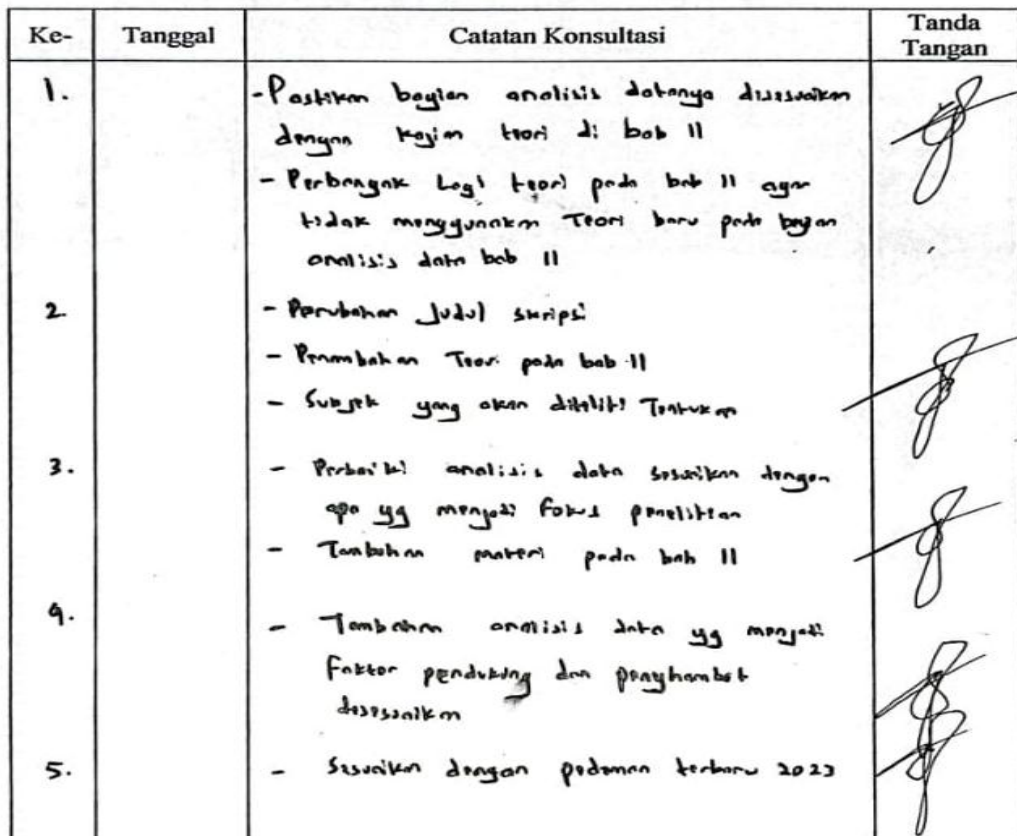 Ke- Tanggal Catatan Konsultasi Tanda Tangan
1. - Pastikan bagian analisis datanya disesuaikan
dengan kajian teori di bab II
- Perbanyak Lagi teori pada bab II agar
tidak menggunakan Teori baru pada bagian
analisis data bab II
2. - Perubahan Judul skripsi
- Penambahan Teori pada bab II
- Subjek yang akan diteliti Tentukan
3. - Perbaiki analisis data sesuaikan dengan
apa yg menjadi fokus penelitian
- Tambahan materi pada bab II
4. - Tambahan analisis data yg menjadi
faktor pendukung dan penghambat
disesuaikan
5. - Sesuaikan dengan pedoman terbaru 2023